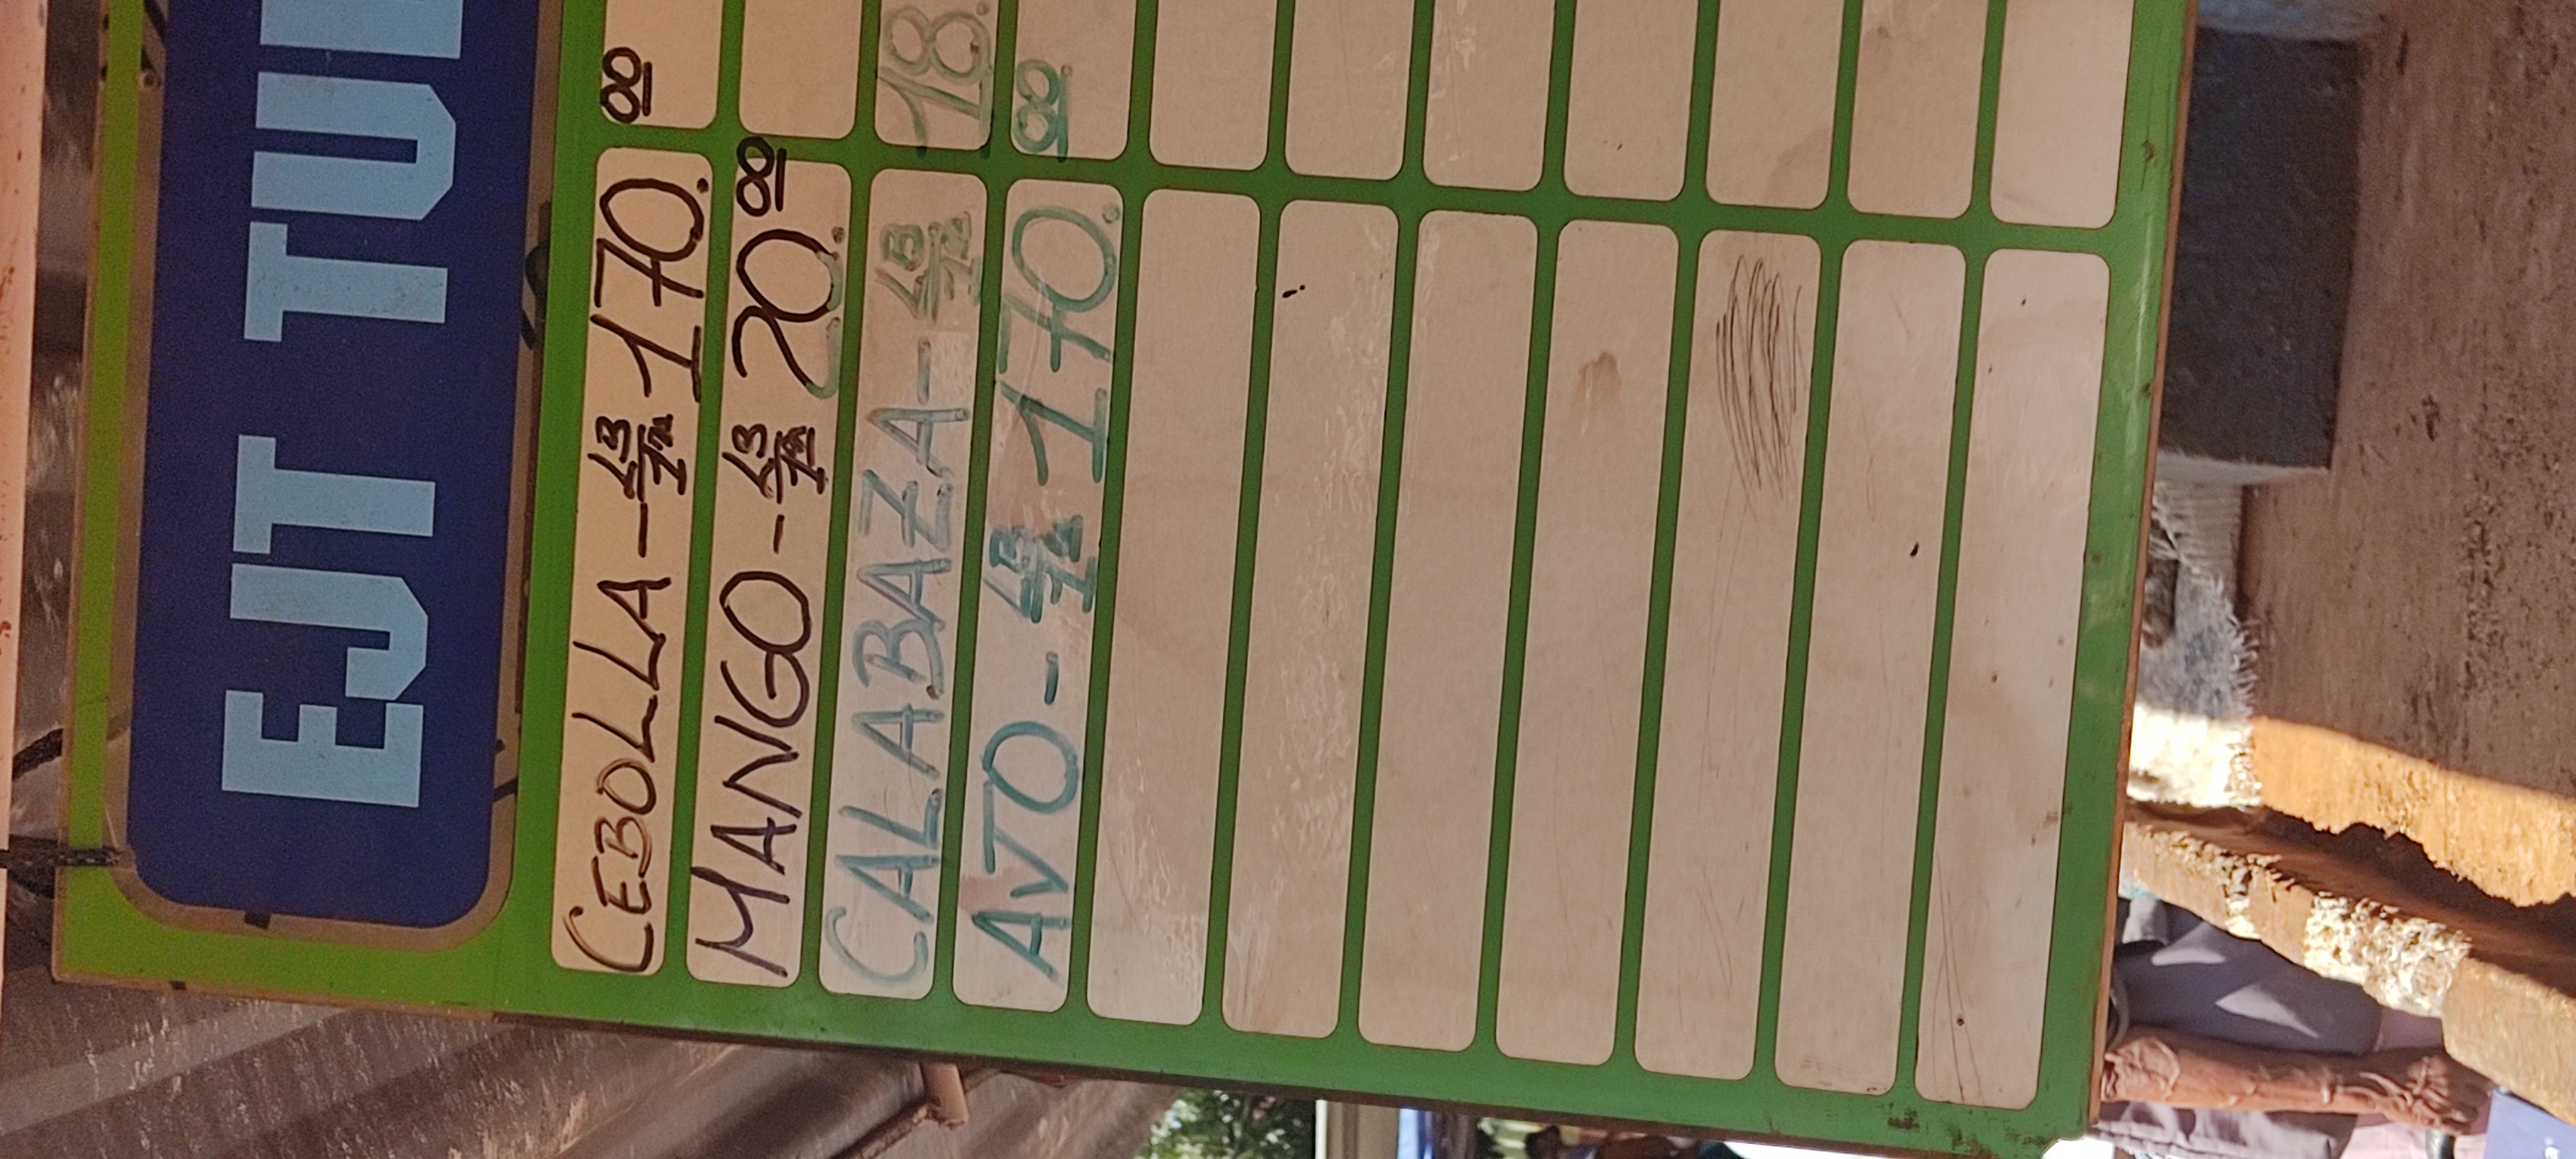 EJT TU
CEBOLLA - LB/1ra 170.00
MANGO - LB/1ra 20.00
CALABAZA - LB/1ra 18.
AJO - LB/1ra 170.00